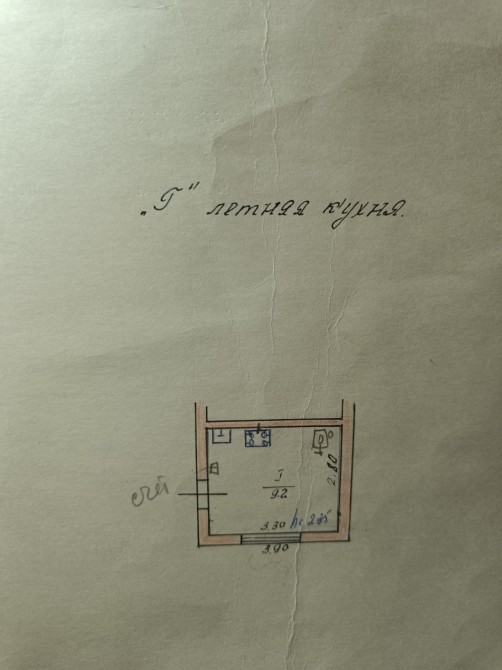 „Г" летняя кухня.
I
9.2
2.80
3.30 h=2.35
3.90